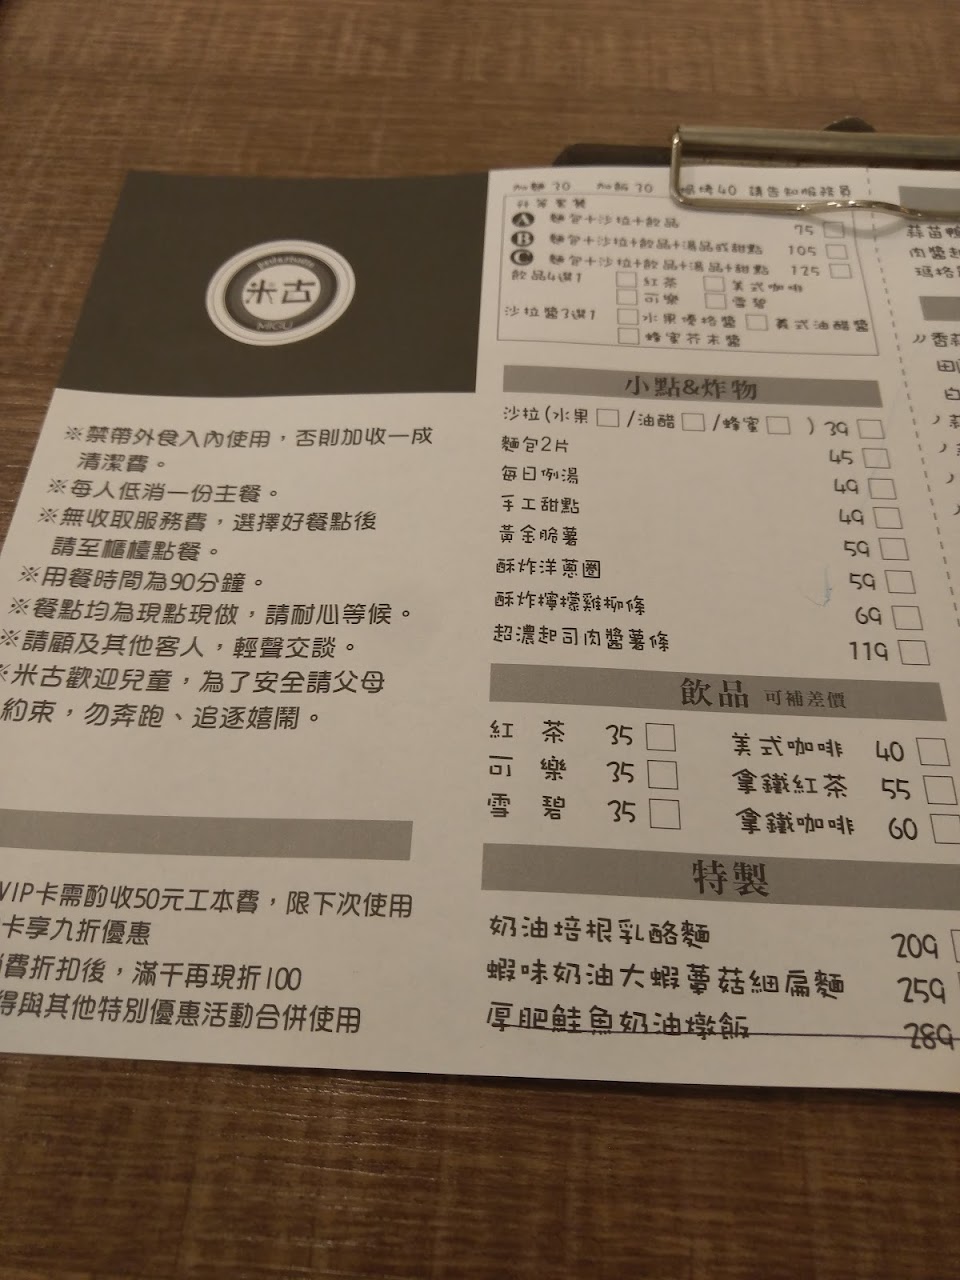 米古
MIGU
※禁帶外食入內使用，否則加收一成
清潔費。
※每人低消一份主餐。
※無收取服務費，選擇好餐點後
請至櫃檯點餐。
※用餐時間為90分鐘。
※餐點均為現點現做，請耐心等候。
※請顧及其他客人，輕聲交談。
※米古歡迎兒童，為了安全請父母
約束，勿奔跑、追逐嬉鬧。
VIP卡需酌收50元工本費，限下次使用
卡享九折優惠
費折扣後，滿千再現折100
得與其他特別優惠活動合併使用
加麵30 加飯30 焗烤40 請告知服務員
升等套餐
A 麵包+沙拉+飲品 75
B 麵包+沙拉+飲品+湯品或甜點 105
C 麵包+沙拉+飲品+湯品+甜點 125
飲品4選1 紅茶 美式咖啡
可樂 雪碧
沙拉醬3選1 水果優格醬 義式油醋醬
蜂蜜芥末醬
小點&炸物
沙拉(水果 /油醋 /蜂蜜 ) 39
麵包2片 45
每日例湯 49
手工甜點 49
黃金脆薯 59
酥炸洋蔥圈 59
酥炸檸檬雞柳條 69
超濃起司肉醬薯條 119
飲品 可補差價
紅茶 35 美式咖啡 40
可樂 35 拿鐵紅茶 55
雪碧 35 拿鐵咖啡 60
特製
奶油培根乳酪麵 209
蝦味奶油大蝦蘑菇細扁麵 259
厚肥鮭魚奶油燉飯 289
蒜苗鴨
肉醬起
瑪格
香蒜
田
白